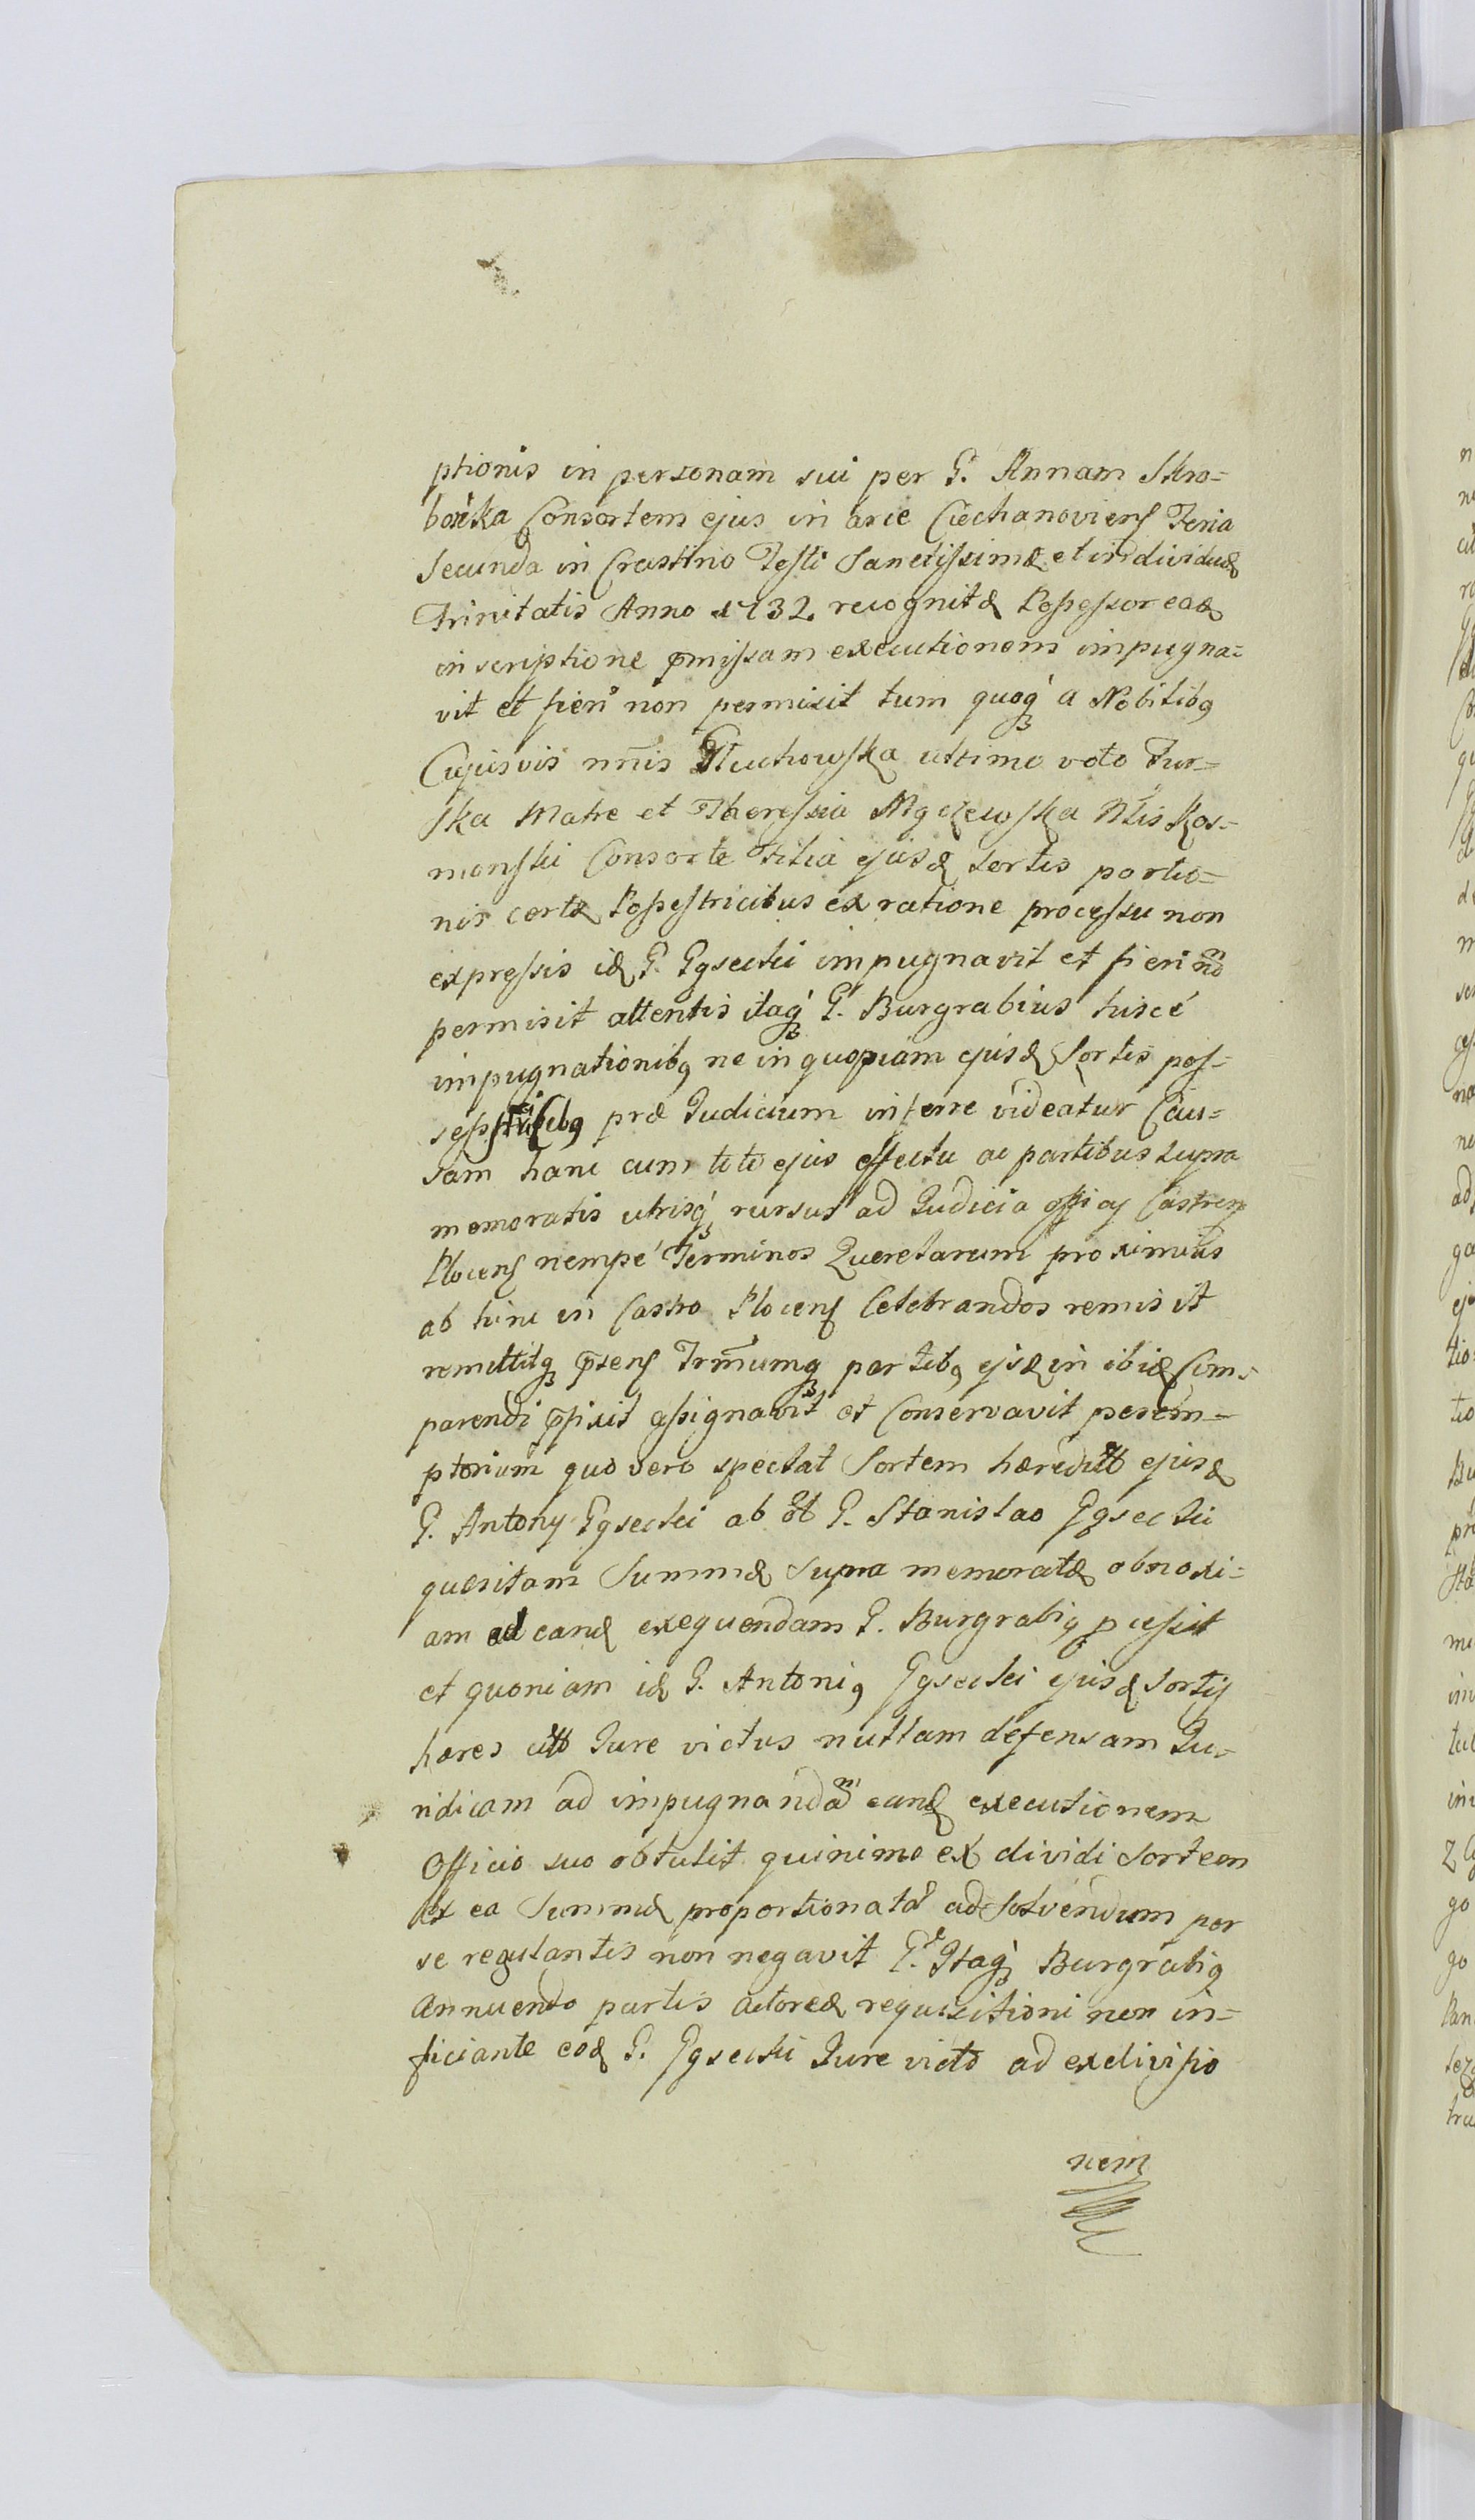 ptionis in personam sui per G. Annam Skro=
bońska Consortem ejus in arce Ciechanoviens Feria
Secunda in Crastino Festi Sanctissimæ et individuæ
Trinitatis Anno 1732. recognitæ Possessor ead
inscriptione pmissam executionem impugna=
vit et fieri non permisit tum quoq a Nobilibq
Cujusvis nnis Głuchowska ultimo voto Tur=
ska Matre et Theressia Mączewska Nlis Kos=
monski Consorte Filia ejusd sortis portio=
nis certæ Possestricibus ex ratione processu non
expressis id G. Gąsecki impugnavit et fieri no
permisit attentis itaq G. Burgrabius hisce
impugnationibq ne in quopiam ejusd Sortis pos=
sesstricibq præ Judicium inferre videatur Cau=
sam hanc cum toto ejus effectu ac partibus supra
memoratis utrisq rursus ad Judicia officij Castren
Plocens nempe Terminos Querelarum proximius
ab hinc in Castro Plocens Celebrandos remisit
remittitq psens Trmumq partibq ejsd in ibid Com=
parendi pfixit assignavit et Conservavit perem=
ptorium quo vero spectat Sortem hæredit ejusd
G. Antony Gąsecki ab ol G. Stanislao Gąsecki
quæsitam Summæ supra memoratæ obnoxi=
am ad eand exequendam G. Burgrabiq pcessit
et quoniam id G. Antoniq Gąsecki ejusd Sortis
hæres uti Jure victus nullam defensam Ju=
ridicam ad impugnandam eand executionem
Officio suo obtulit quinimo ex dividi sortem
ex ea Summæ proportionatæ ad Solvendum per
se regulantis non negavit G. Itaq Burgrabiq
annuendo partis actoreæ requisitioni non in=
ficiante eod G. Gąsecki Jure victo ad exdivisio
nem